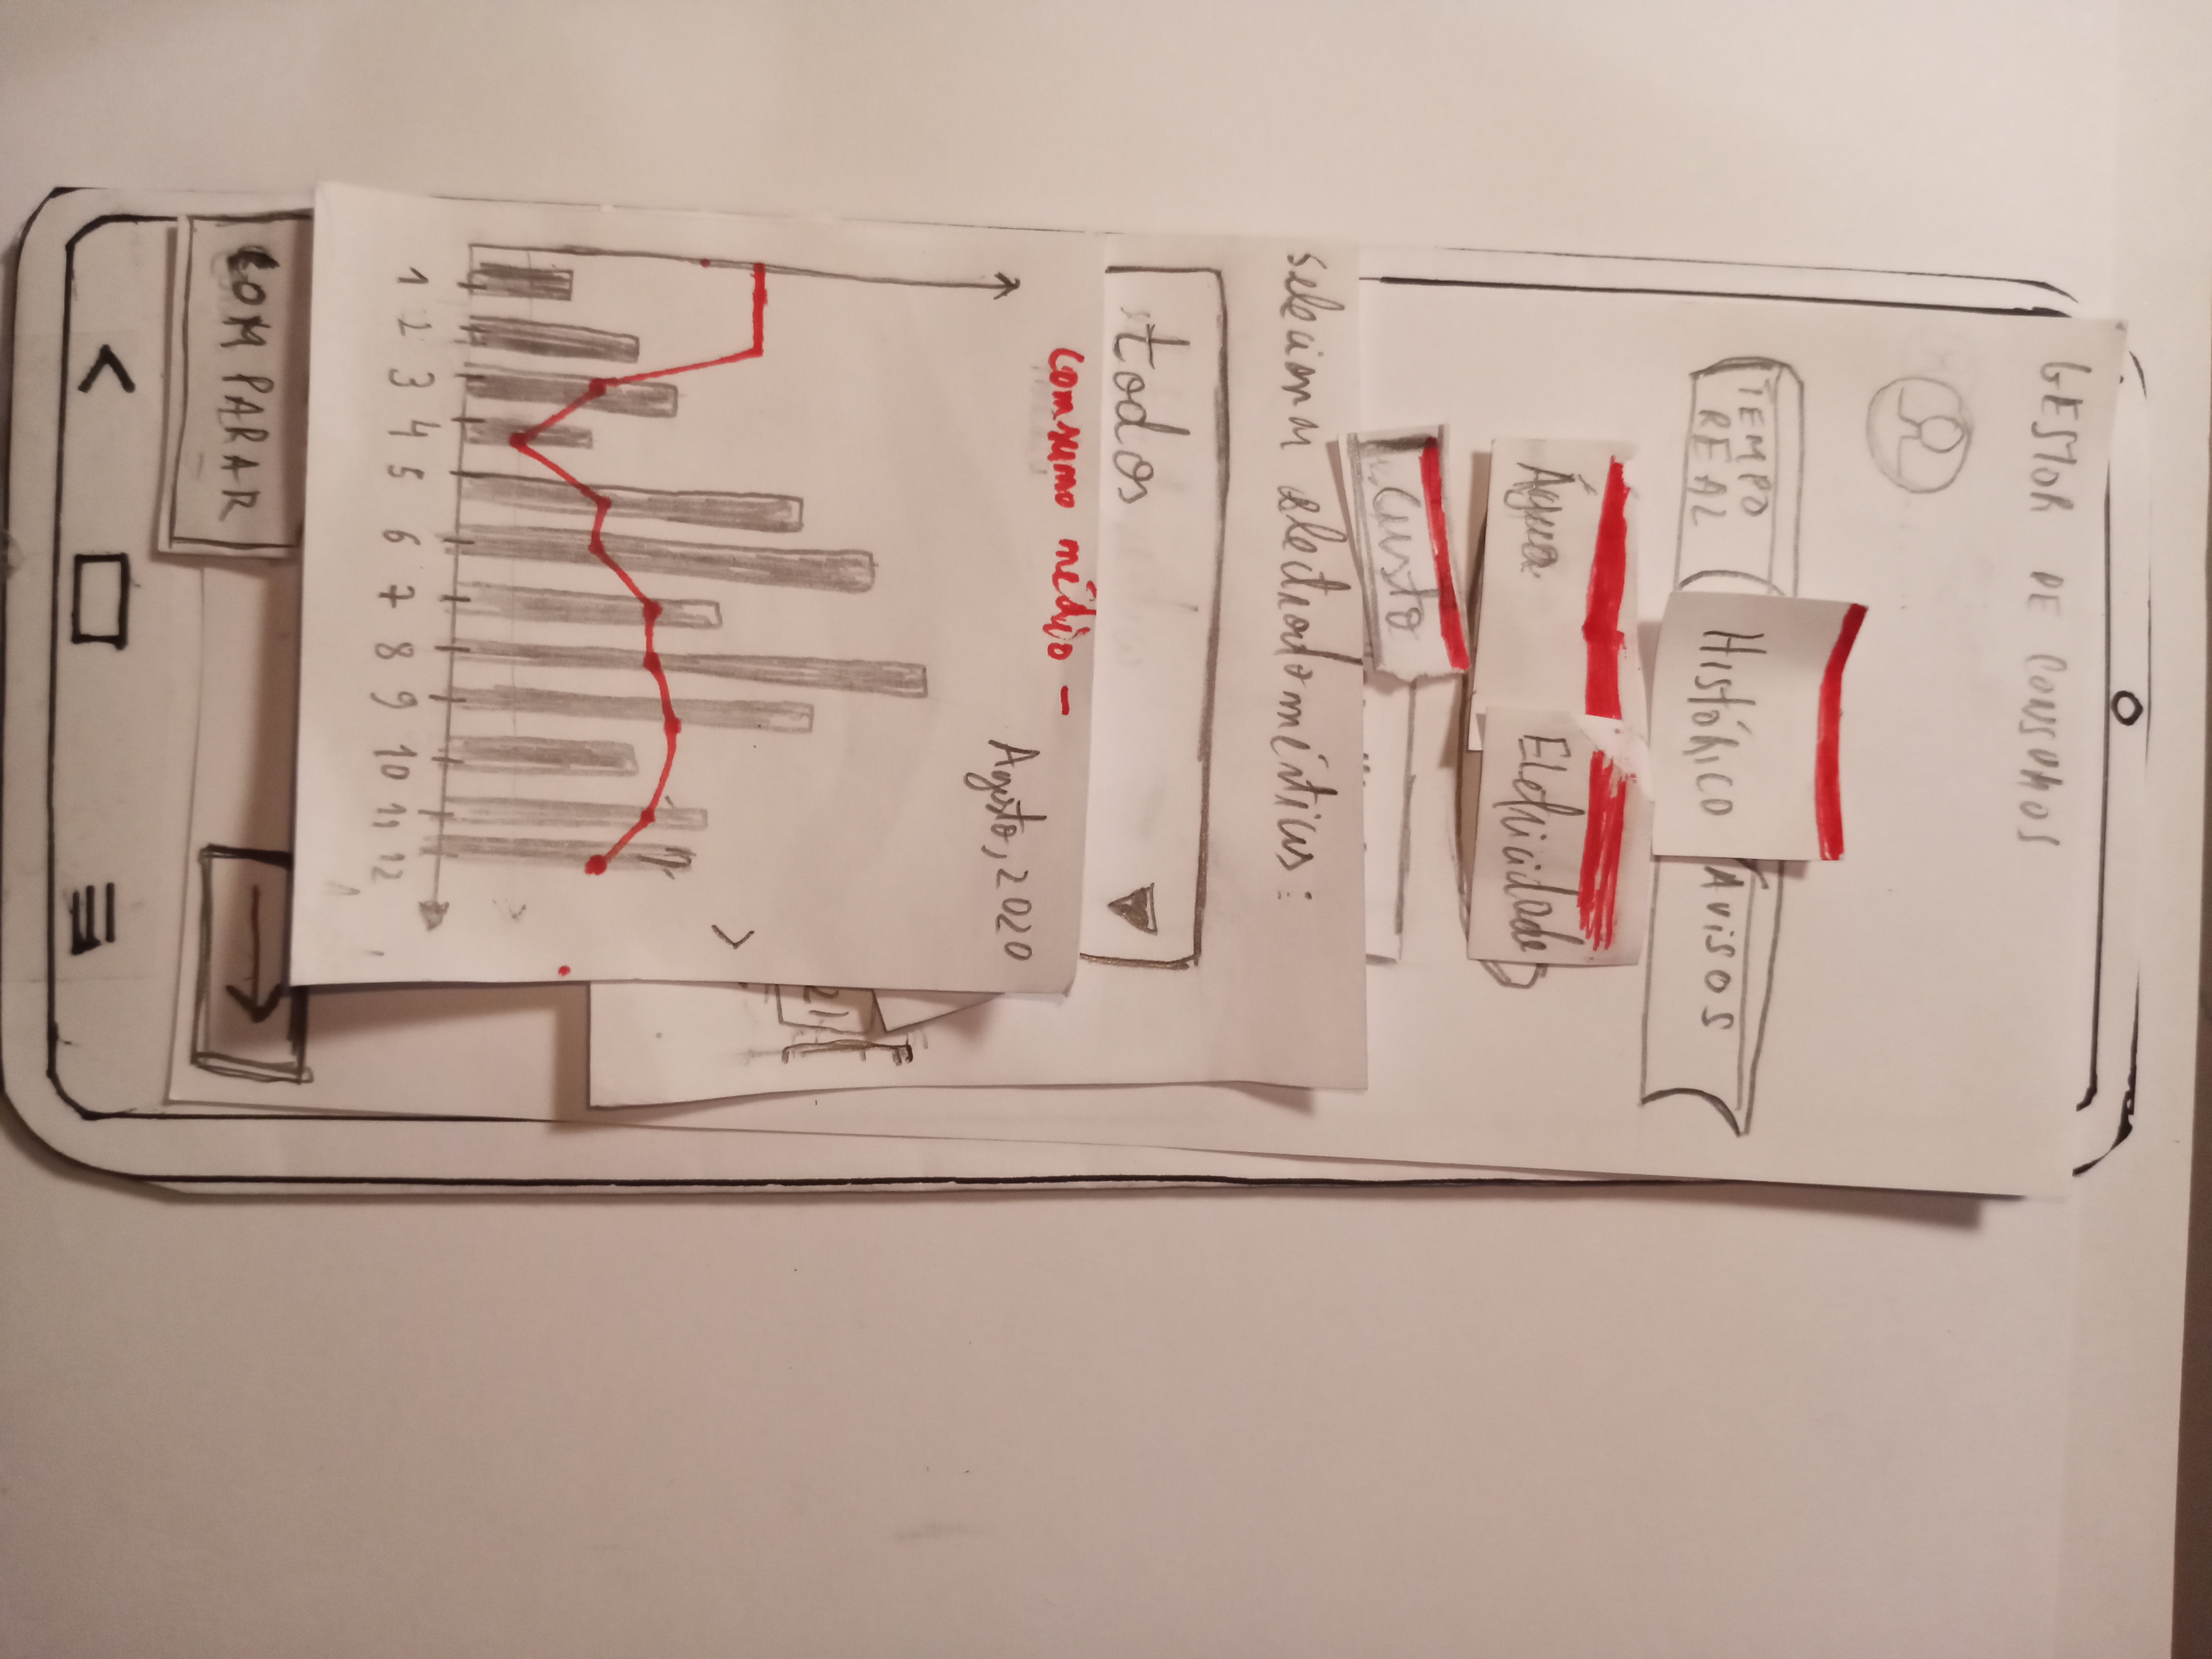 GESTOR DE CONSUMOS
TEMPO REAL
Histórico
AVISOS
Água
Eletricidade
Custo
selecionar eletrodomésticos:
todos
Consumo médio -
Agosto, 2020
1 2 3 4 5 6 7 8 9 10 11 12
COMPARAR